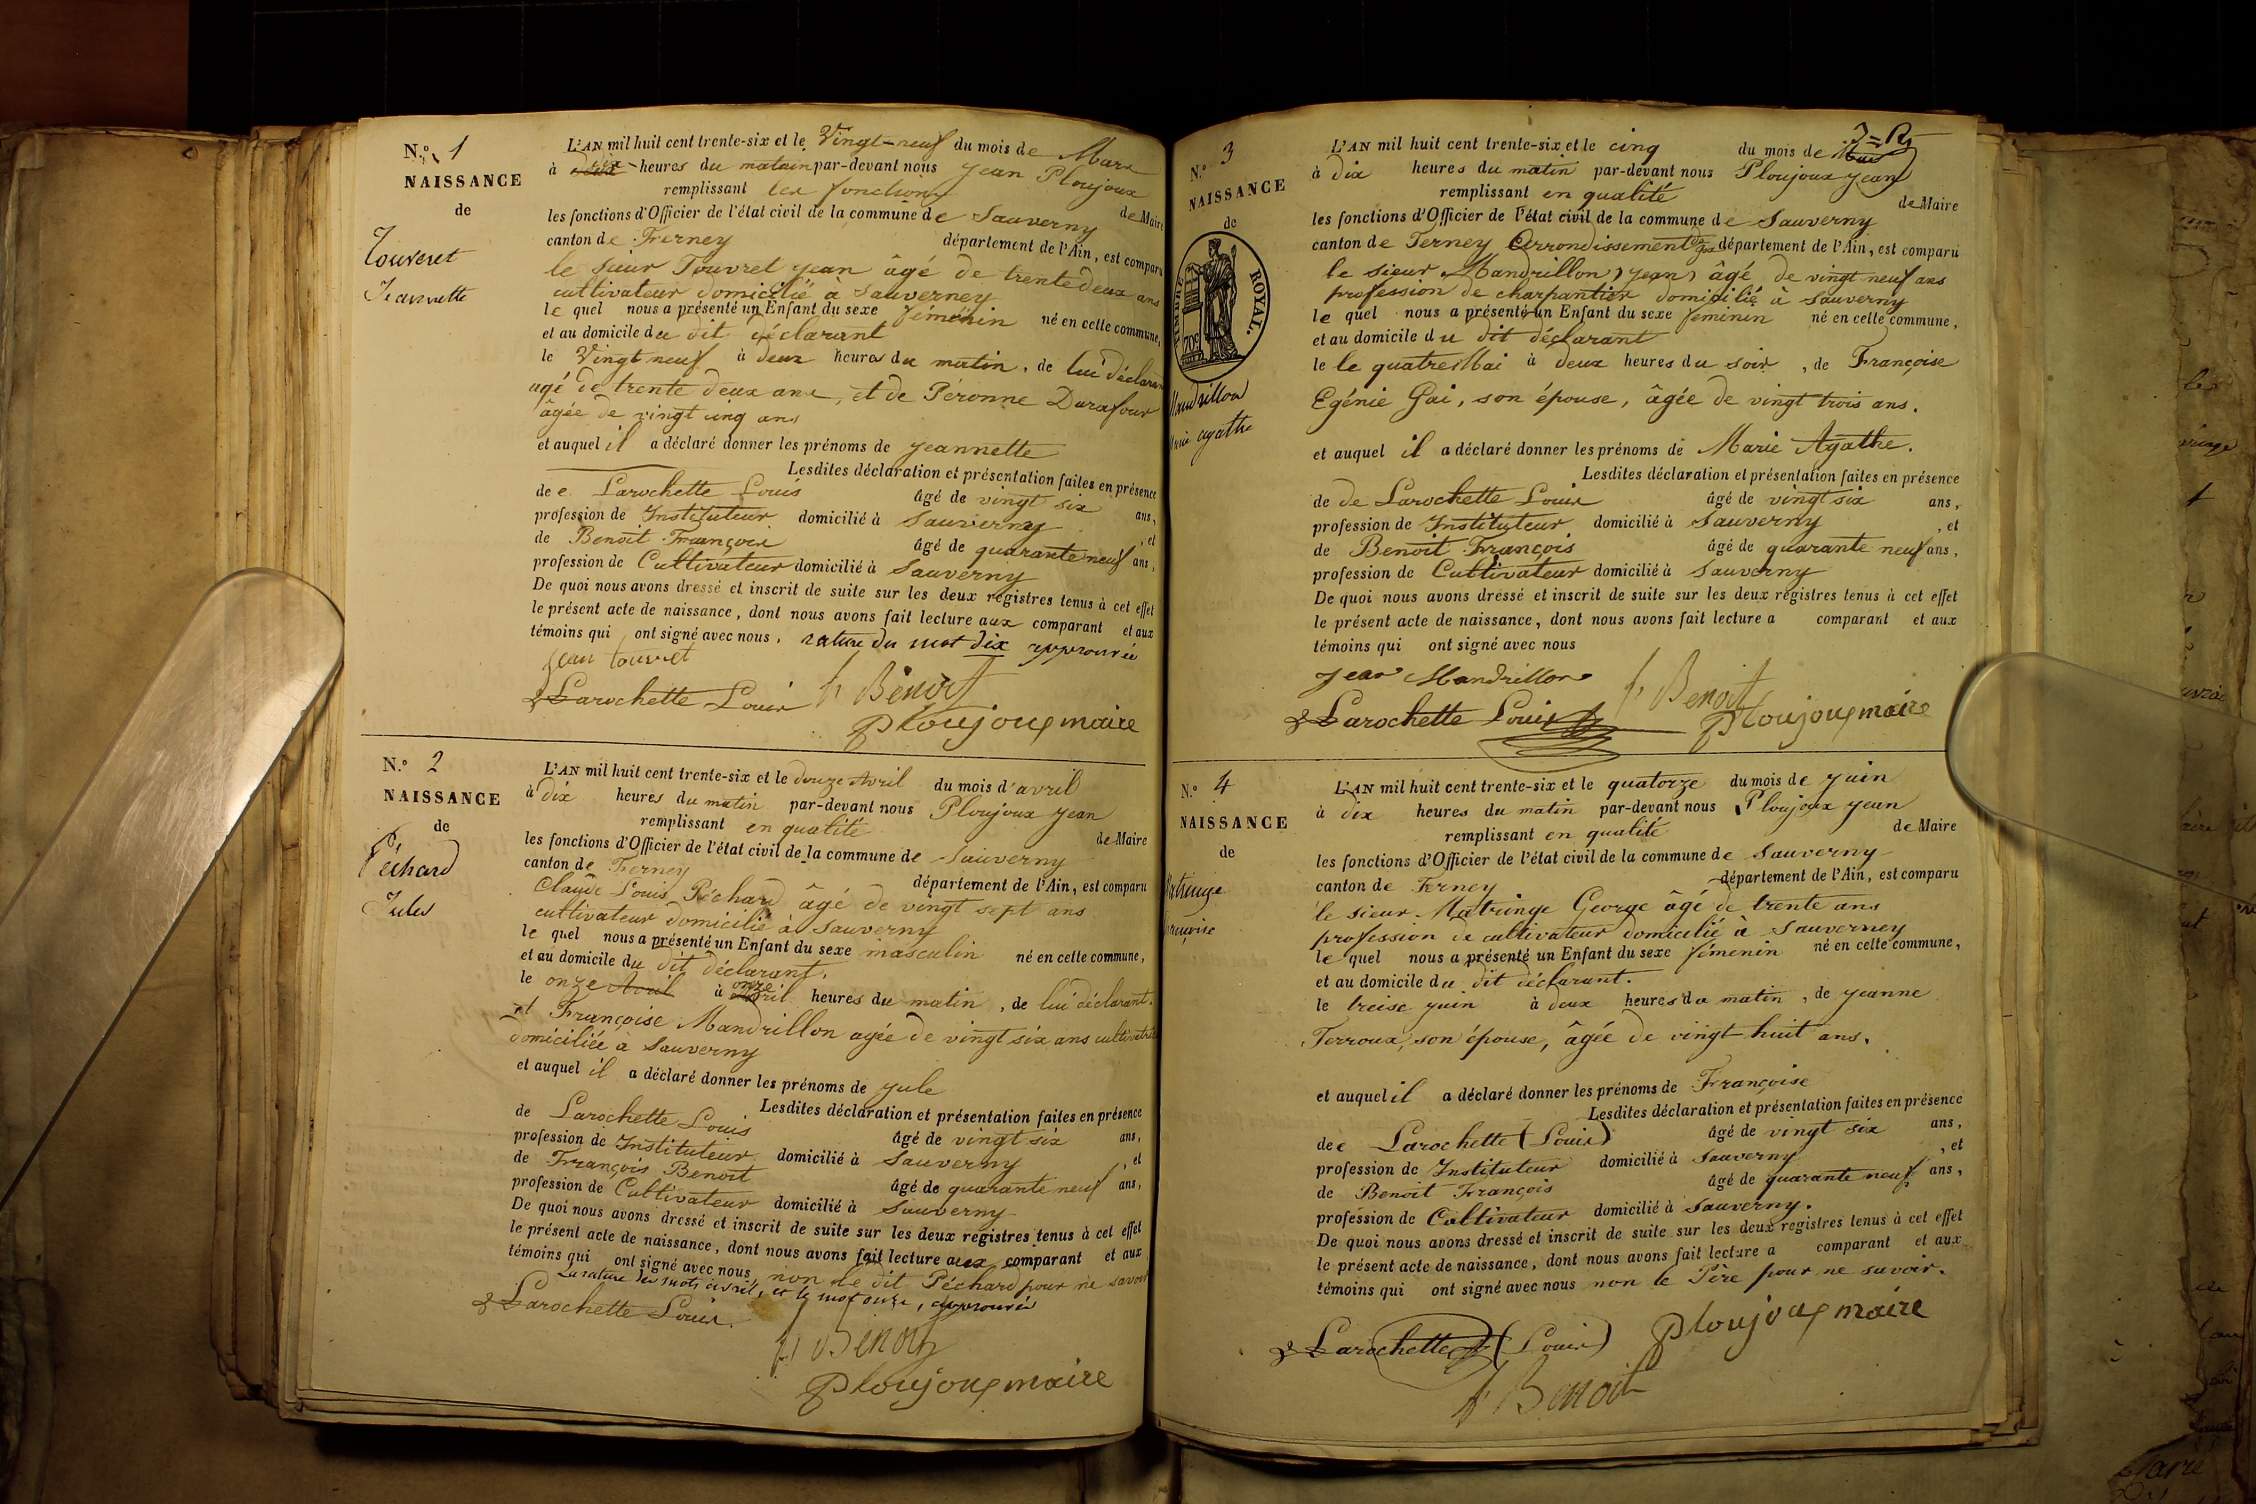 N.º 1
NAISSANCE
de
Touvret
Jeannette
L'AN mil huit cent trente-six et le Vingt-neuf du mois de Mars
à dix heures du matin par-devant nous Jean Ploujoux
remplissant les fonctions de Maire
les fonctions d'Officier de l'état civil de la commune de Sauverny
canton de Ferney département de l'Ain, est comparu
le sieur Touvret jean âgé de trente deux ans
cultivateur domicilié à Sauverney
le quel nous a présenté un Enfant du sexe féménin né en cette commune,
et au domicile du dit déclarant
le Vingt neuf à deux heures du matin, de lui déclarant
agé de trente deux ans, et de Péronne Durafour
âgée de vingt cinq ans
et auquel il a déclaré donner les prénoms de jeannette
Lesdites déclaration et présentation faites en présence
de e Larochette Louis âgé de vingt six ans,
profession de Instituteur domicilié à Sauverny, et
de Benoit François âgé de quarante neuf ans,
profession de Cultivateur domicilié à Sauverny
De quoi nous avons dressé et inscrit de suite sur les deux registres tenus à cet effet
le présent acte de naissance, dont nous avons fait lecture aux comparant et aux
témoins qui ont signé avec nous, rature du mot dix approuvée
jean touvret
Larochette Louis f, Benoit
Ploujoux maire
N.º 2
NAISSANCE
de
Péchard
Jules
L'AN mil huit cent trente-six et le douze Avril du mois d'avril
à dix heures du matin par-devant nous Ploujoux jean
remplissant en qualité de Maire
les fonctions d'Officier de l'état civil de la commune de Sauverny
canton de Ferney département de l'Ain, est comparu
Claude Louis Péchard âgé de vingt sept ans
cultivateur domicilié à Sauverny
le quel nous a présenté un Enfant du sexe masculin né en cette commune,
et au domicile du dit déclarant.
le onze Avril à onze avril heures du matin, de lui déclarant.
et Françoise Mandrillon agée de vingt six ans cultivatrice
domiciliée à Sauverny
et auquel il a déclaré donner les prénoms de jule
Lesdites déclaration et présentation faites en présence
de Larochette Louis âgé de vingt six ans,
profession de Instituteur domicilié à Sauverny, et
de François Benoit âgé de quarante neuf ans,
profession de Cultivateur domicilié à Sauverny
De quoi nous avons dressé et inscrit de suite sur les deux registres tenus à cet effet
le présent acte de naissance, dont nous avons fait lecture aux comparant et aux
témoins qui ont signé avec nous, non le dit Péchard pour ne savoir
La rature des mots avril, et le mot onze, approuvés
Larochette Louis.
f, Benoit
Ploujoux maire
N.º 3
NAISSANCE
de
TIMBRE ROYAL.
70c
Mandrillon
Marie agathe
L'AN mil huit cent trente-six et le cinq du mois de Mai
à dix heures du matin par-devant nous Ploujoux jean
remplissant en qualité de Maire
les fonctions d'Officier de l'état civil de la commune de Sauverny
canton de Ferney Arrondissement de Gex département de l'Ain, est comparu
le sieur Mandrillon, jean, âgé de vingt neuf ans
profession de charpantier domicilié à Sauverny
le quel nous a présenté un Enfant du sexe femenin né en cette commune,
et au domicile du dit déclarant
le le quatre Mai à deux heures du soir, de Françoise
Egénie Gai, son épouse, âgée de vingt trois ans.
et auquel il a déclaré donner les prénoms de Marie Agathe.
Lesdites déclaration et présentation faites en présence
de de Larochette Louis âgé de vingt six ans,
profession de Instituteur domicilié à Sauverny, et
de Benoit François âgé de quarante neuf ans,
profession de Cultivateur domicilié à Sauverny
De quoi nous avons dressé et inscrit de suite sur les deux registres tenus à cet effet
le présent acte de naissance, dont nous avons fait lecture a comparant et aux
témoins qui ont signé avec nous
jean Mandrillon f, Benoit
Larochette Louis Ploujoux maire
N.º 4
NAISSANCE
de
Matringe
Françoise
L'AN mil huit cent trente-six et le quatorze du mois de juin
à dix heures du matin par-devant nous Ploujoux jean
remplissant en qualité de Maire
les fonctions d'Officier de l'état civil de la commune de Sauverny
canton de Ferney département de l'Ain, est comparu
le sieur Matringe George âgé de trente ans
profession de cultivateur domicilié à Sauverney
le quel nous a présenté un Enfant du sexe féménin né en cette commune,
et au domicile du dit déclarant.
le treise juin à deux heures du matin, de jeanne
Terroux, son épouse, âgée de vingt huit ans.
et auquel il a déclaré donner les prénoms de Françoise
Lesdites déclaration et présentation faites en présence
de e Larochette (Louis) âgé de vingt six ans,
profession de Instituteur domicilié à Sauverny, et
de Benoit François âgé de quarante neuf ans,
profession de Cultivateur domicilié à Sauverny.
De quoi nous avons dressé et inscrit de suite sur les deux registres tenus à cet effet
le présent acte de naissance, dont nous avons fait lecture a comparant et aux
témoins qui ont signé avec nous non le Père pour ne savoir.
Larochette (Louis) Ploujoux maire
f, Benoit